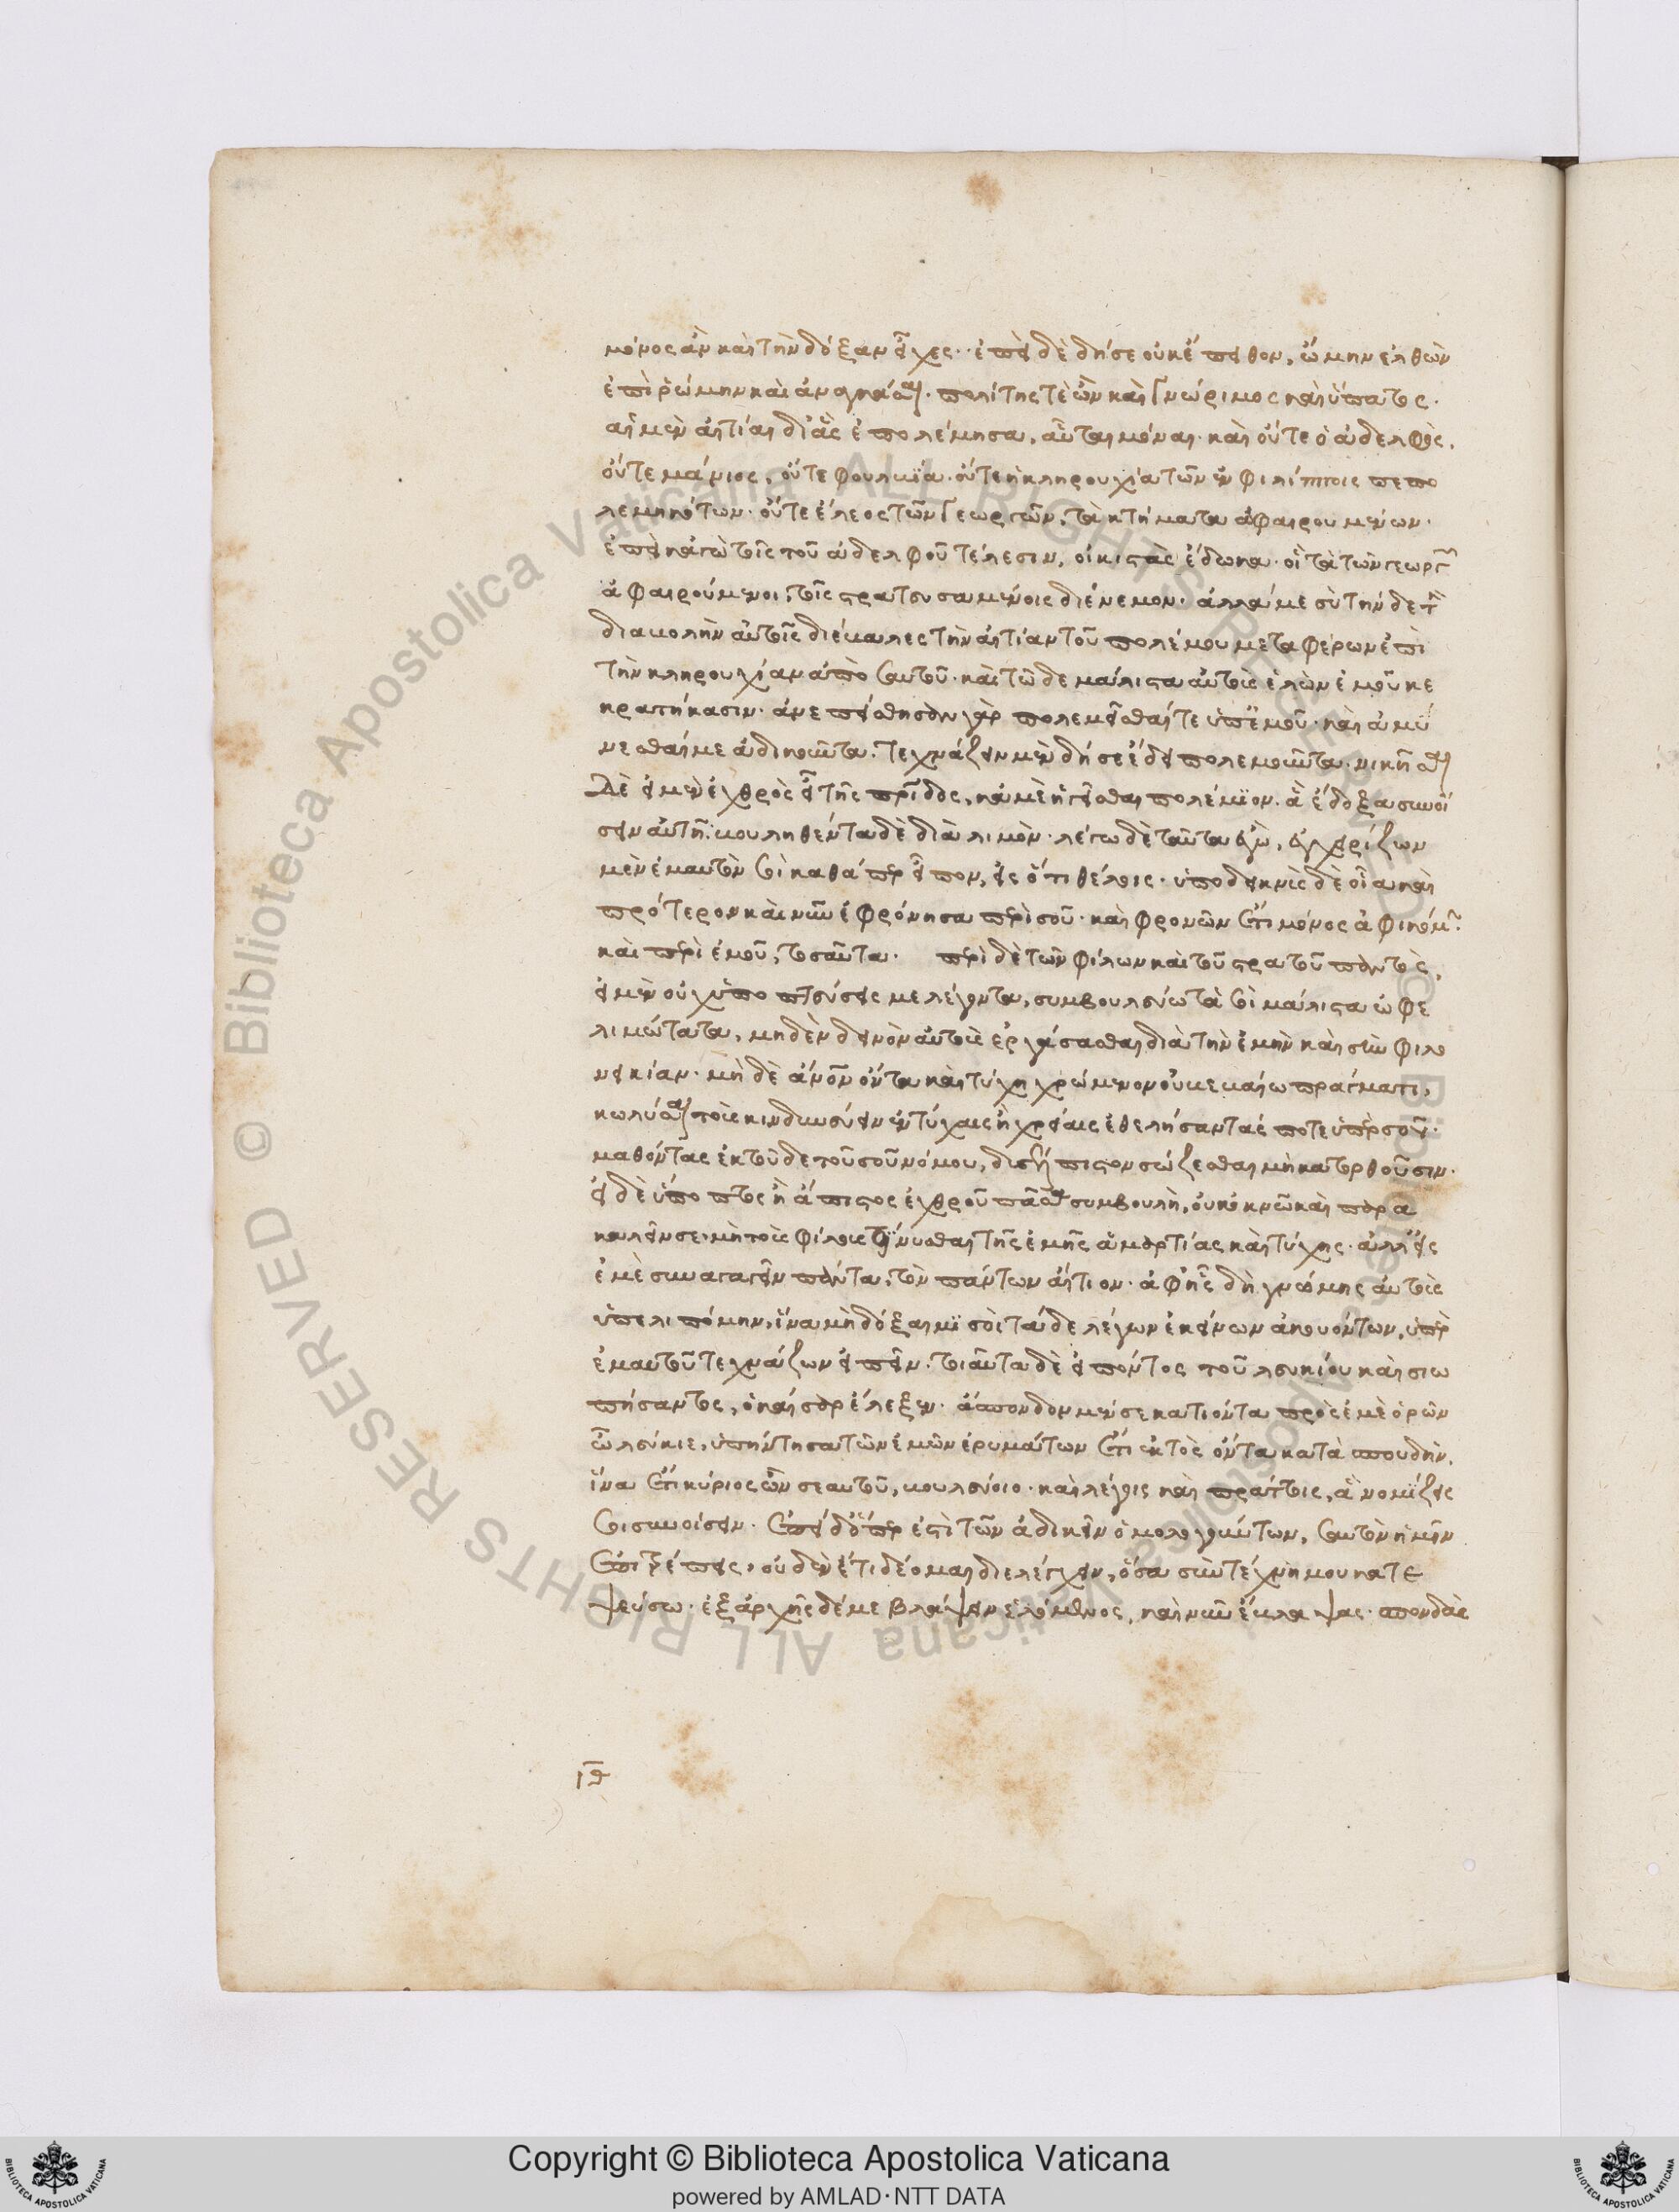 μόνος ἂν καὶ τὴν δόξαν εἶχες· ἐπεὶ δὲ δή σε οὐκ ἔπειθον, ὤμην ἐλθὼν
ἐπὶ ῥώμην καὶ ἀναγκάσαι· πολίτης τὲ ὢν καὶ γνώριμος καὶ ὕπατος·
αἱ μὲν αἰτίαι δι' ἃς ἐπολέμησα, αὗται μόναι· καὶ οὔτε ὁ ἀδελφὸς,
οὔτε μάνιος, οὔτε φουλβία· οὔτε ἡ κληρουχία τῶν ἐν φιλίπποις πεπο
λεμηκότων· οὔτε ἔλεος τῶν γεωργῶν, τὰ κτήματα ἀφαιρουμένων·
ἐπεὶ κἀγὼ τοῖς τοῦ ἀδελφοῦ τέλεσιν, οἰκιστὰς ἔδωκα· οἳ τὰ τῶν γεωργῶν
ἀφαιρούμενοι, τοῖς στρατευσαμένοις διένεμον· ἀλλά με σὺ τήνδε τὴν
διαβολὴν αὐτοῖς διέβαλες τὴν αἰτίαν τοῦ πολέμου μεταφέρων ἐπὶ
τὴν κληρουχίαν ἀπὸ σαυτοῦ· καὶ τῶδε μάλιστα αὐτοὺς ἑλὼν ἐμοῦ κε
κρατήκασιν· ἀνεπείσθησαν γὰρ πολεμεῖσθαί τε ὑπ' ἐμοῦ· καὶ ἀμύ
νεσθαί με ἀδικοῦντα· τεχνάζειν μὲν δή σε ἔδει πολεμοῦντα· νικῆσαι
δὲ εἰ μὲν ἐχθρὸς εἶ τῆς πατρίδος, κἀμὲ ἡγεῖσθαι πολέμιον· ἃ ἔδοξα συνοί
σειν αὐτῆ· βουληθέντα δὲ διὰ λιμὸν· λέγω δὲ ταῦτα ἐγὼ, ἐγχειρίζων
μὲν ἐμαυτὸν σοὶ καθάπερ εἶπον, εἰς ὅτι θέλοις· ὑποδεικνὺς δὲ οἷα καὶ
πρότερον καὶ νῦν ἐφρόνησα περὶ σοῦ· καὶ φρονῶν ἔτι μόνος ἀφικόμην·
καὶ περὶ ἐμοῦ, τοσαῦτα· περὶ δὲ τῶν φίλων καὶ τοῦ στρατοῦ παντὸς,
εἰ μὲν οὐχ ὑποπτεύσεις με λέγοντα, συμβουλεύω τὰ σοὶ μάλιστα ὠφε
λιμώτατα, μηδὲν δεινὸν αὐτοὺς ἐργάσασθαι διὰ τὴν ἐμὴν καὶ σὴν φιλο
νεικίαν· μὴ δὲ ἄν̅ο̅ν ὄντα καὶ τύχη χρώμενον οὐ βεβαίω πράγματι,
κωλῦσαι τοὺς κινδυνεύειν ἐν τύχαις ἢ χρείαις ἐθελήσαντάς ποτε ὑπὲρ σοῦ·
μαθόντας ἐκ τοῦδε τοῦ σοῦ νόμου, δύσελπιστον σώζεσθαι μὴ κατορθοῦσιν·
εἰ δὲ ὕποπτος ἢ ἄπιστος ἐχθροῦ πᾶσα συμβουλὴ, οὐκ ὀκνῶ καὶ παρα
καλεῖν σε· μὴ τοὺς φίλους τίνυσθαι τῆς ἐμῆς ἁμαρτίας καὶ τύχης· ἀλλ' εἰς
ἐμὲ συναγαγεῖν πάντα, τὸν πάντων αἴτιον· ἀφ' ἧς δὴ γνώμης αὐτοὺς
ὑπελιπόμην, ἵνα μὴ δόξαιμί σοι τάδε λέγων ἐκείνων ἀκουόντων, ὑπὲρ
ἐμαυτοῦ τεχνάζων εἰπεῖν· τοιαῦτα δὲ εἰπόντος τοῦ λευκίου καὶ σιω
πήσαντος, ὁ καῖσαρ ἔλεξεν· ἄσπονδον μέν σε κατιόντα πρὸς ἐμὲ ὁρῶν
ὦ λεύκιε, ὑπήντησα τῶν ἐμῶν ἐρυμάτων ἔτι ἐκτὸς ὄντα κατὰ σπουδὴν,
ἵνα ἔτι κύριος ὢν σεαυτοῦ, βουλεύοιο· καὶ λέγοις καὶ πράττοις, ἃ νομίζεις
σοι συνοίσειν· ἐπεὶ δ' ὅπερ ἐστὶ τῶν ἀδικεῖν ὁμολογούντων, σαυτὸν ἡμῖν
ἐπιτρέπεις, οὐδὲν ἔτι δέομαι διελέγχειν, ὅσα σὺν τέχνη μου κατε
ψεύσω· ἐξ ἀρχῆς δέ με βλάψειν ἑλόμενος, καὶ νῦν ἔβλαψας· σπονδὰς
ι̅θ̅
Copyright © Biblioteca Apostolica Vaticana
powered by AMLAD·NTT DATA